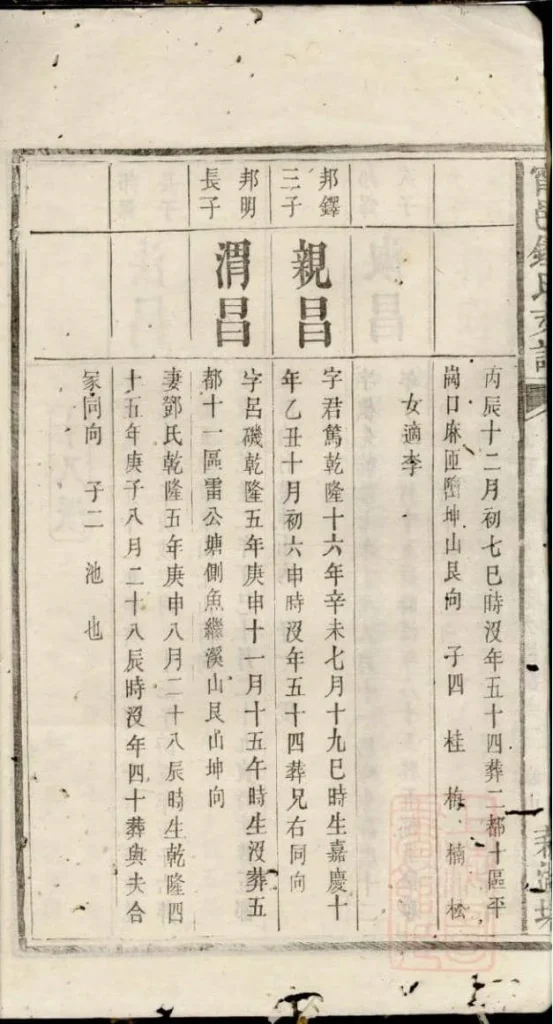 丙辰十二月初七巳時沒年五十四葬二都十區平
崗口麻匝壋坤山艮向 子四 桂 梅 楠 松
女適李
邦鐸
三子
親昌
字君篤乾隆十六年辛未七月十九巳時生嘉慶十
年乙丑十月初六申時沒年五十四葬兄右同向
邦明
長子
渭昌
字呂磯乾隆五年庚申十一月十五午時生沒葬五
都十一區雷公塘側魚繼溪山艮山坤向
妻鄧氏乾隆五年庚申八月二十八辰時生乾隆四
十五年庚子八月二十八辰時沒年四十葬與夫合
冢同向 子二 池 也